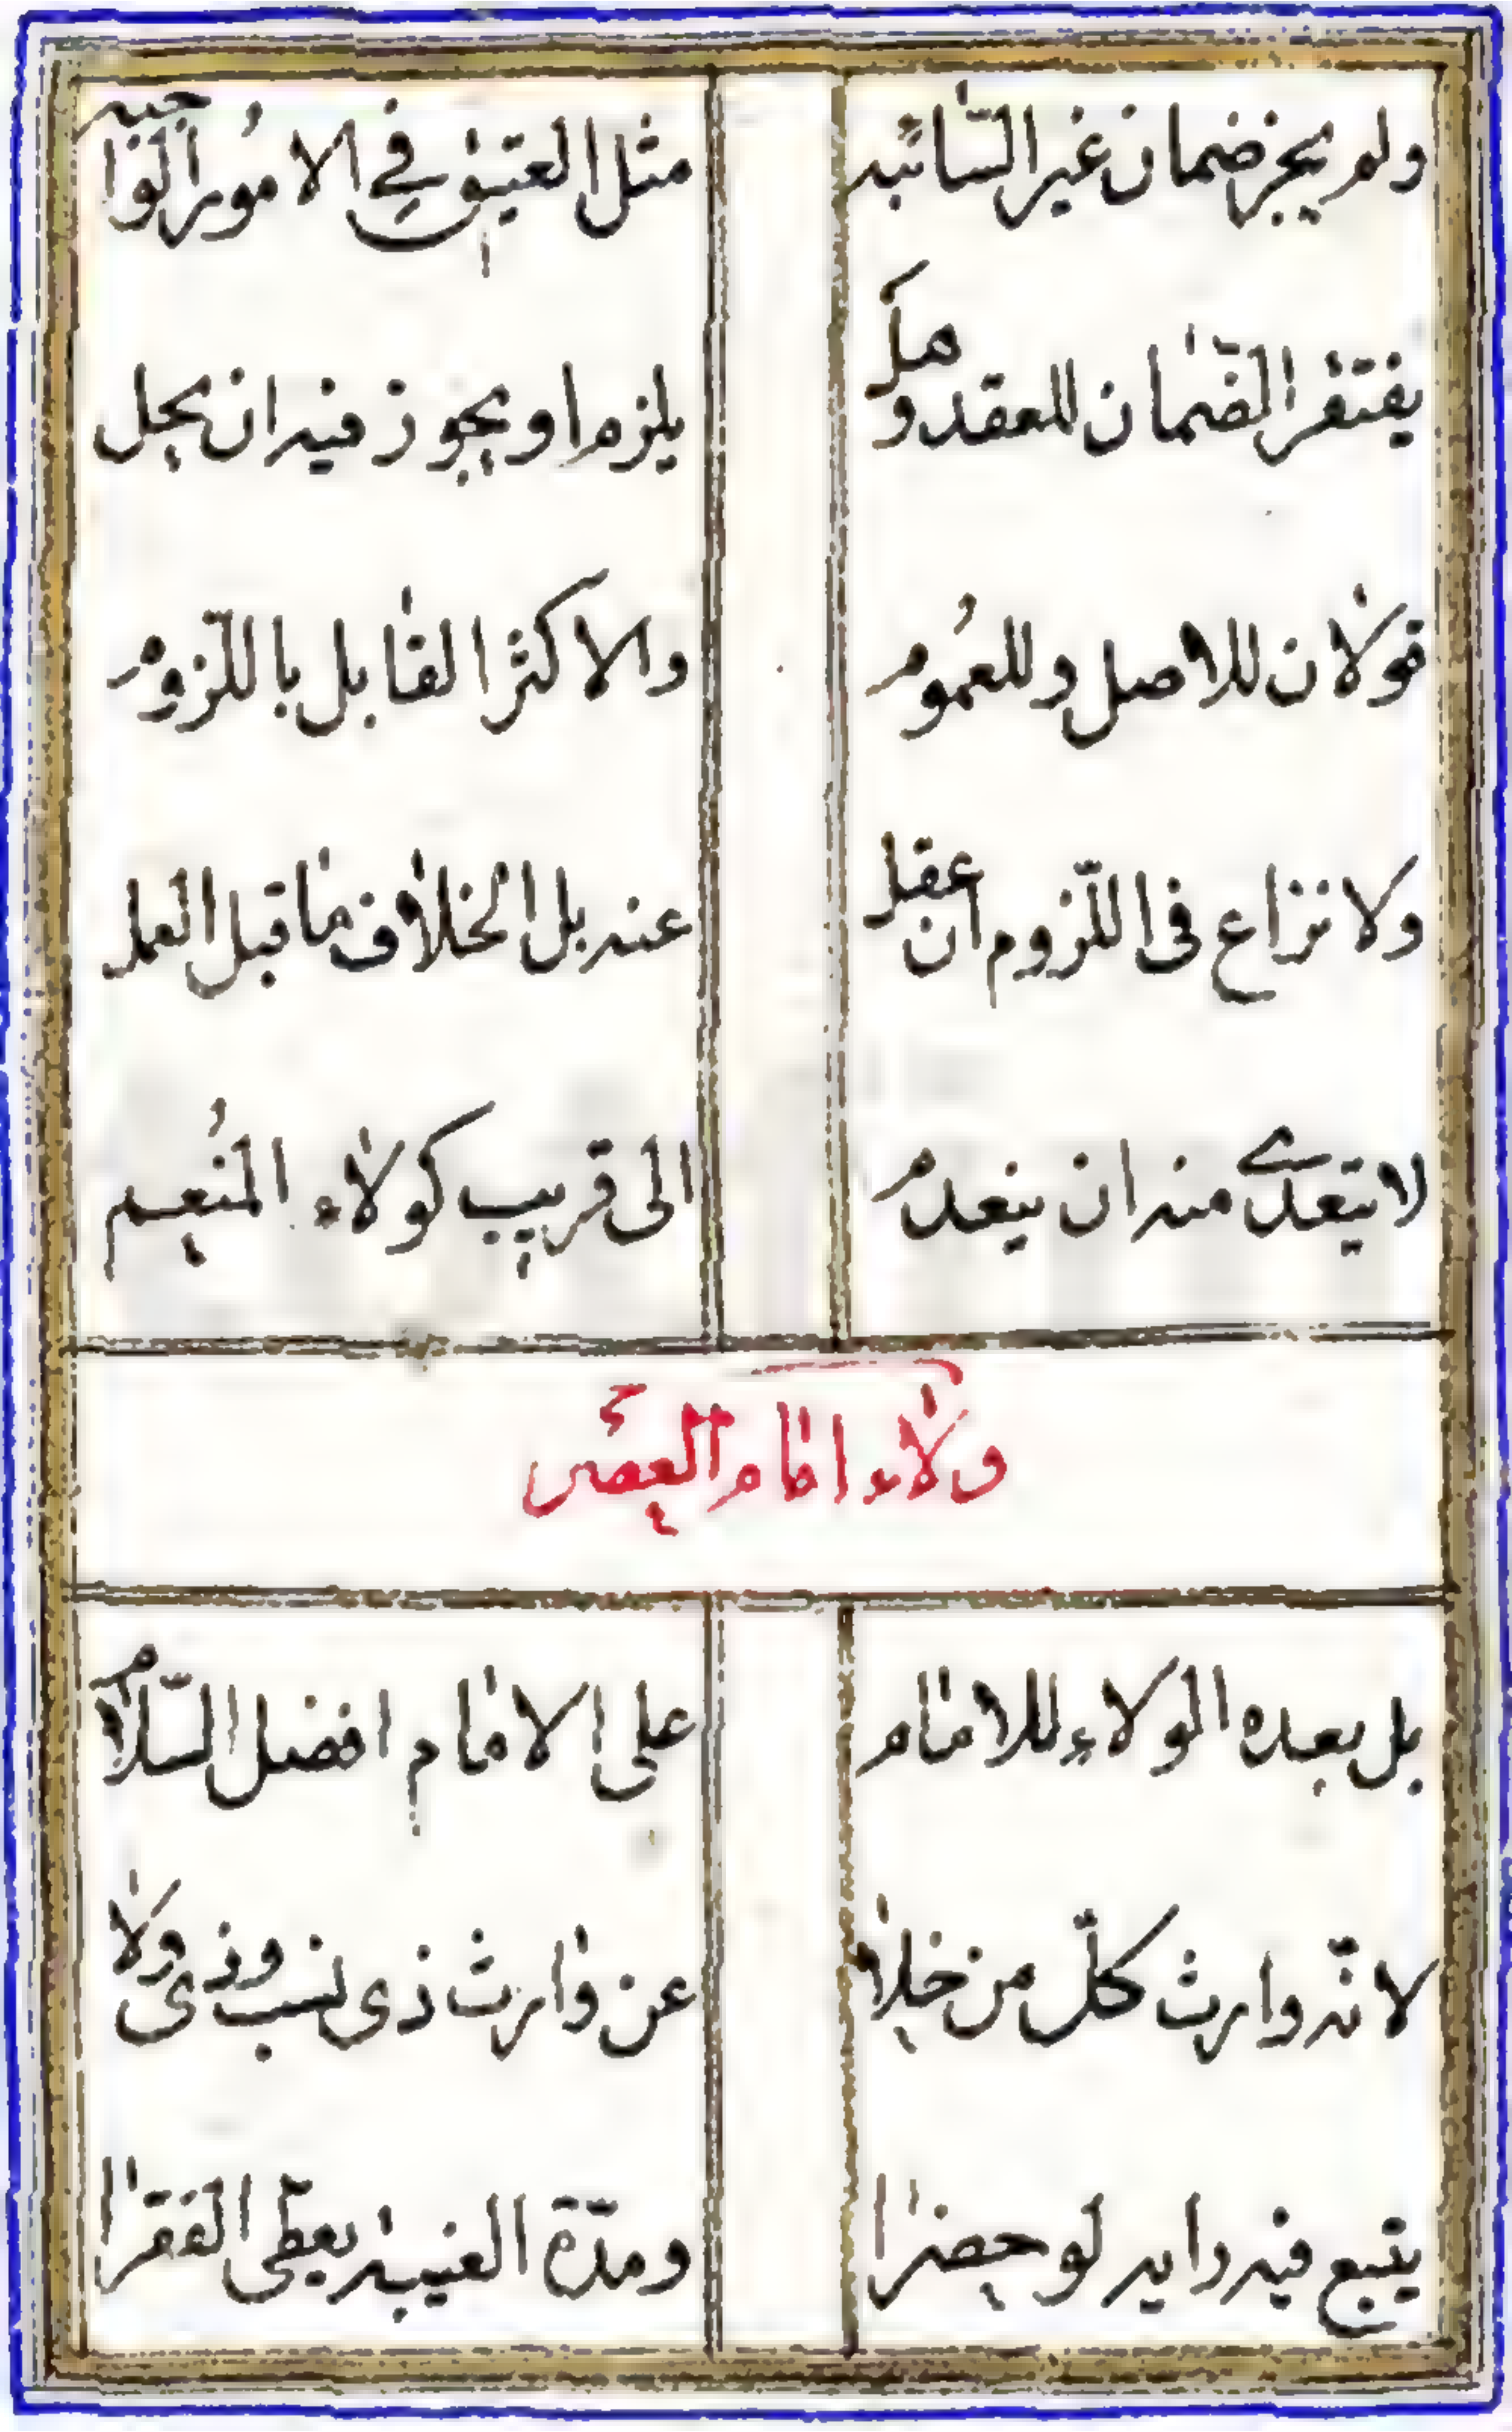 ولم يجز ضمان غير السّائبه مثل العتيق في الامور الواجبه
يفتقر الضّمان للعقد وهل يلزم او يجوز فيه ان يحل
قولان للاصل وللعموم والاكثر القابل باللّزوم
ولا نزاع فى اللّزوم ان عقل عنه بل الخلاف ما قبل العمل
لا يتعدّى منه ان ينعدم الى قريب كولاء المنعم
ولاء امام العصر
بل بعده الولاء للامام على الامام افضل السّلام
لانّه وارث كلّ من خلا عن وارث ذى نسب وذى ولا
يتبع فيه رايه لو حضرا ومدّة الغيبه يعطى الفقرا